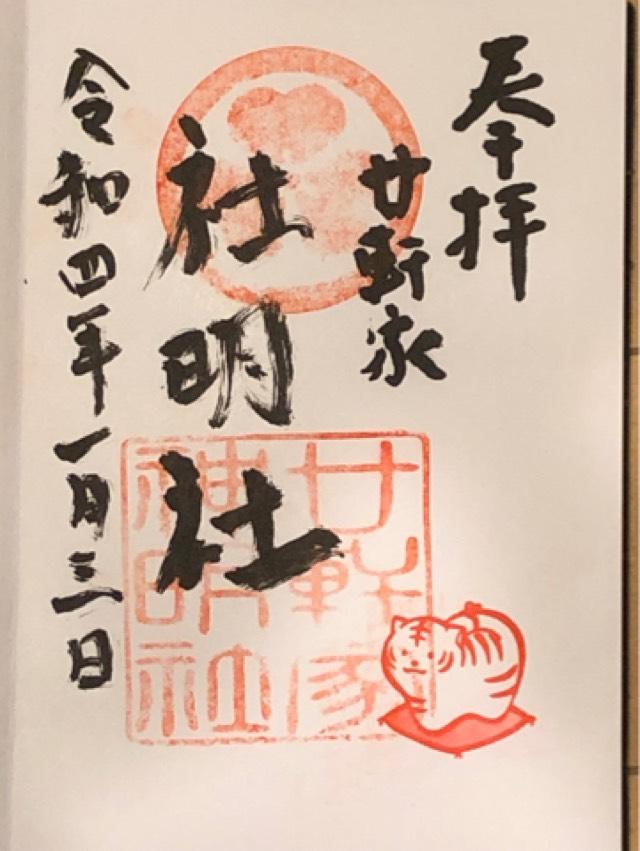 奉拝
廿軒家
社明社
令和四年一月三日
廿軒家
神明社